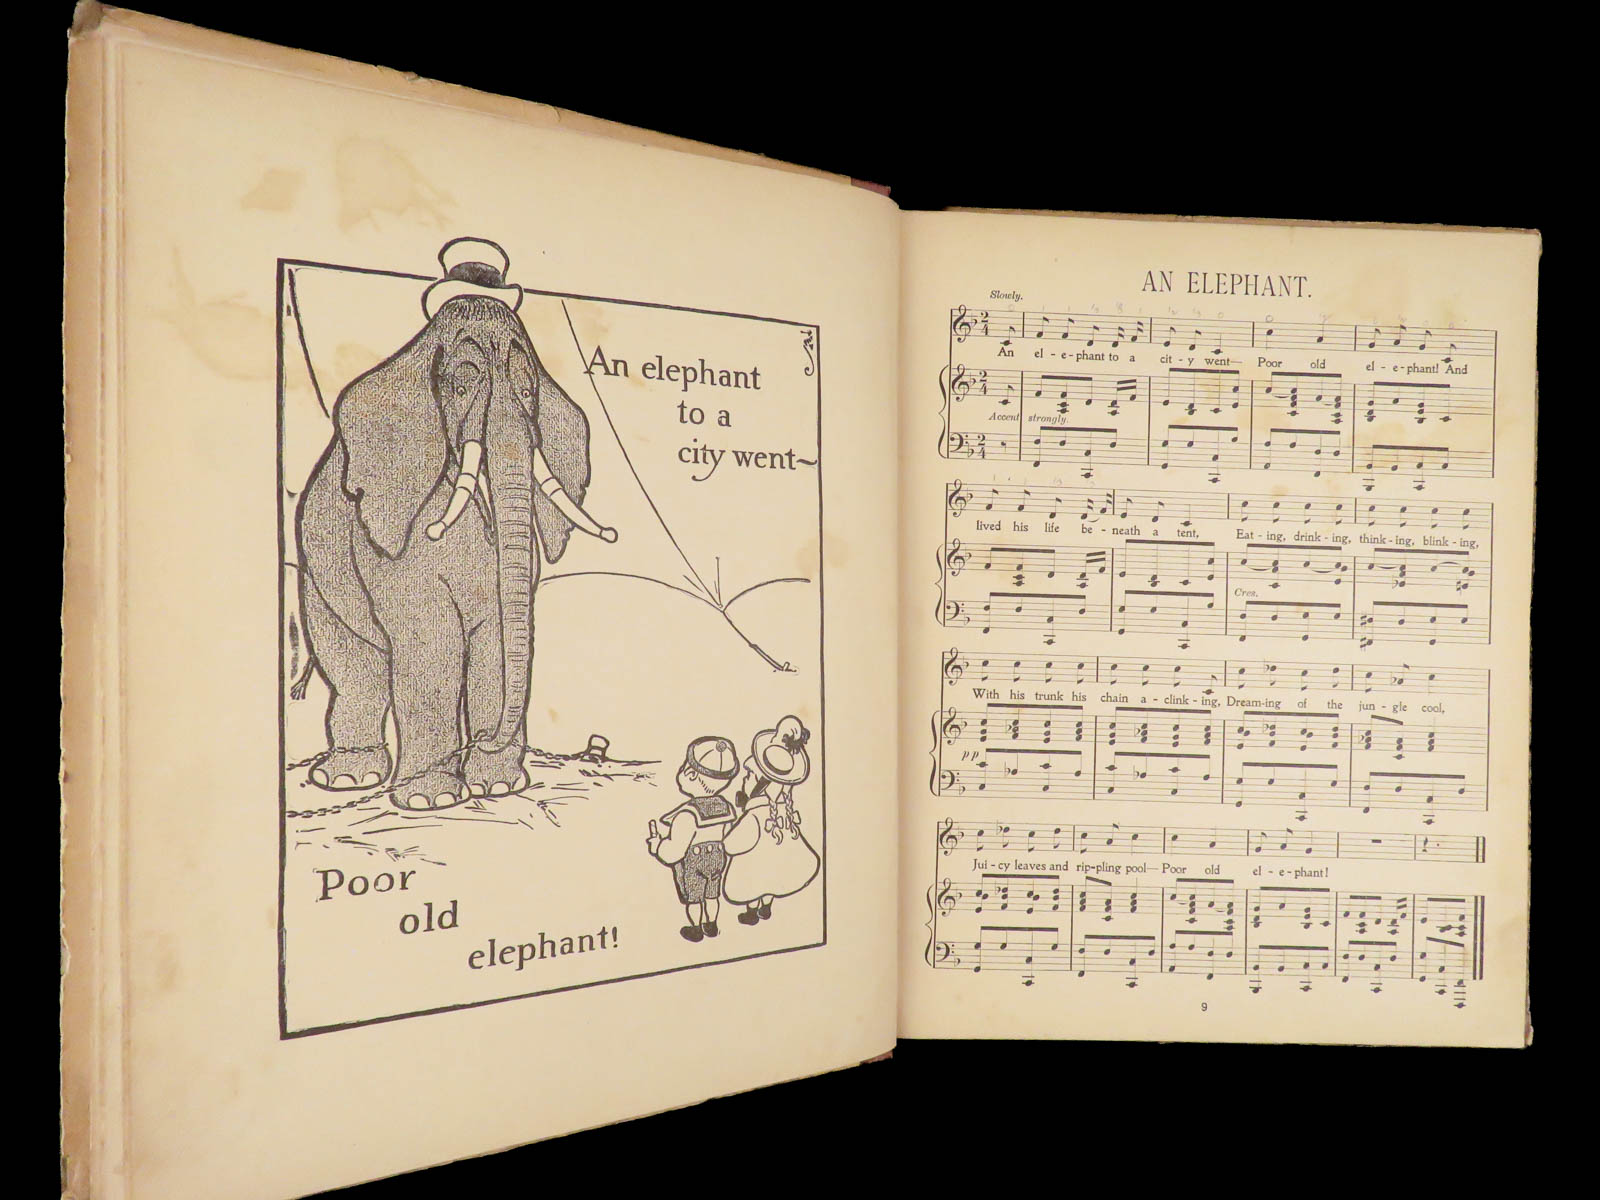 An elephant
to a
city went~
Poor
old
elephant!
AN ELEPHANT.
Slowly.
An el - e - phant to a cit - y went— Poor old el - e - phant! And
Accent strongly.
lived his life be - neath a tent, Eat - ing, drink - ing, think - ing, blink - ing,
Cres.
With his trunk his chain a - clink - ing, Dream-ing of the jun - gle cool,
pp
Jui - cy leaves and rip-pling pool— Poor old el - e - phant!
9